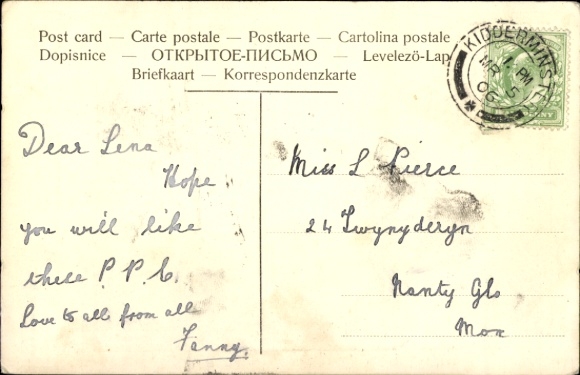 Post card — Carte postale — Postkarte — Cartolina postale
Dopisnice — ОТКРЫТОЕ-ПИСЬМО — Levelezö-Lap
Briefkaart — Korrespondenzkarte
KIDDERMINSTER
1. PM
MR 5
06
Dear Lena
Hope
you will like
these P.P.C.
Love to all from all
Fanny.
Miss L Pierce
24 Twynyderyn
Nanty Glo
Mon